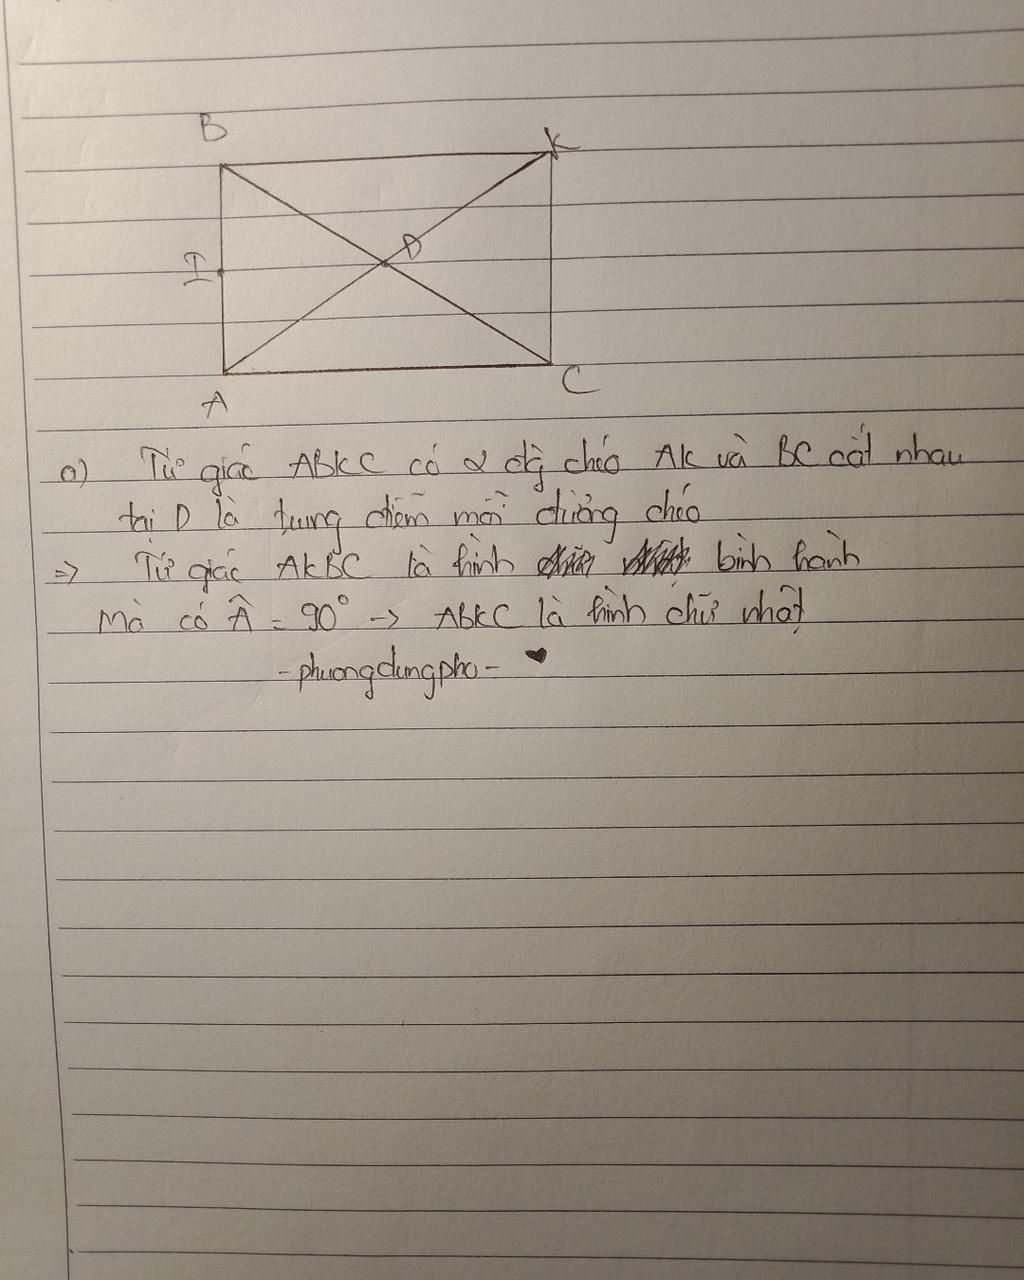 B
K
I
D
A
C
a) Tứ giác ABKC có 2 đg chéo AK và BC cắt nhau
tại D là trung điểm mỗi đường chéo
=> Tứ giác AKBC là hình bình hành
Mà có Â = 90° -> ABKC là hình chữ nhật
- phuongdungpho - ♥